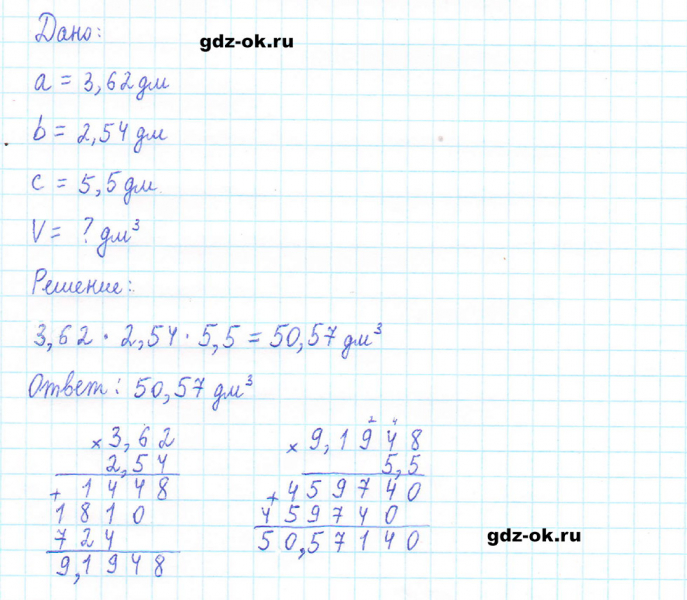 Дано:
gdz-ok.ru
a = 3,62 дм
b = 2,54 дм
c = 5,5 дм
V = ? дм³
Решение:
3,62 · 2,54 · 5,5 = 50,57 дм³
Ответ: 50,57 дм³
× 3,62
2,54
+ 1448
1810
724
9,1948
2 4
× 9,1948
5,5
+ 459740
459740
50,57140
gdz-ok.ru